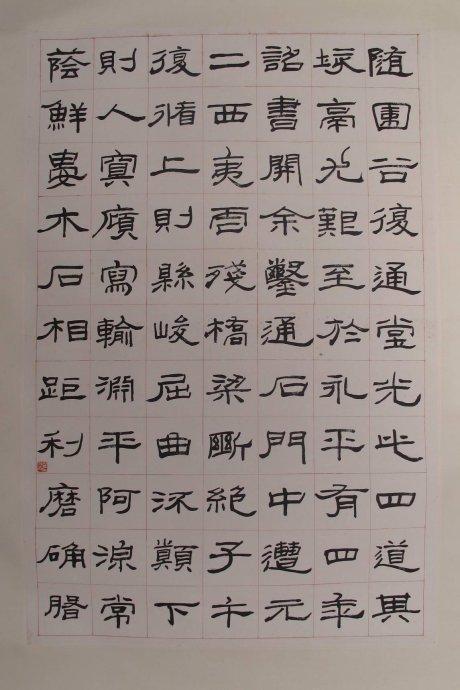 随圍谷復通堂光此四道其
垓鬲尤艱至於永平有四年
詔書開余鑿通石門中遭元
二西夷虐殘橋梁斷絕子午
復循上則縣峻屈曲流顛下
則入冥廎寫輸淵平阿湶常
蔭鮮晏木石相距利磨确